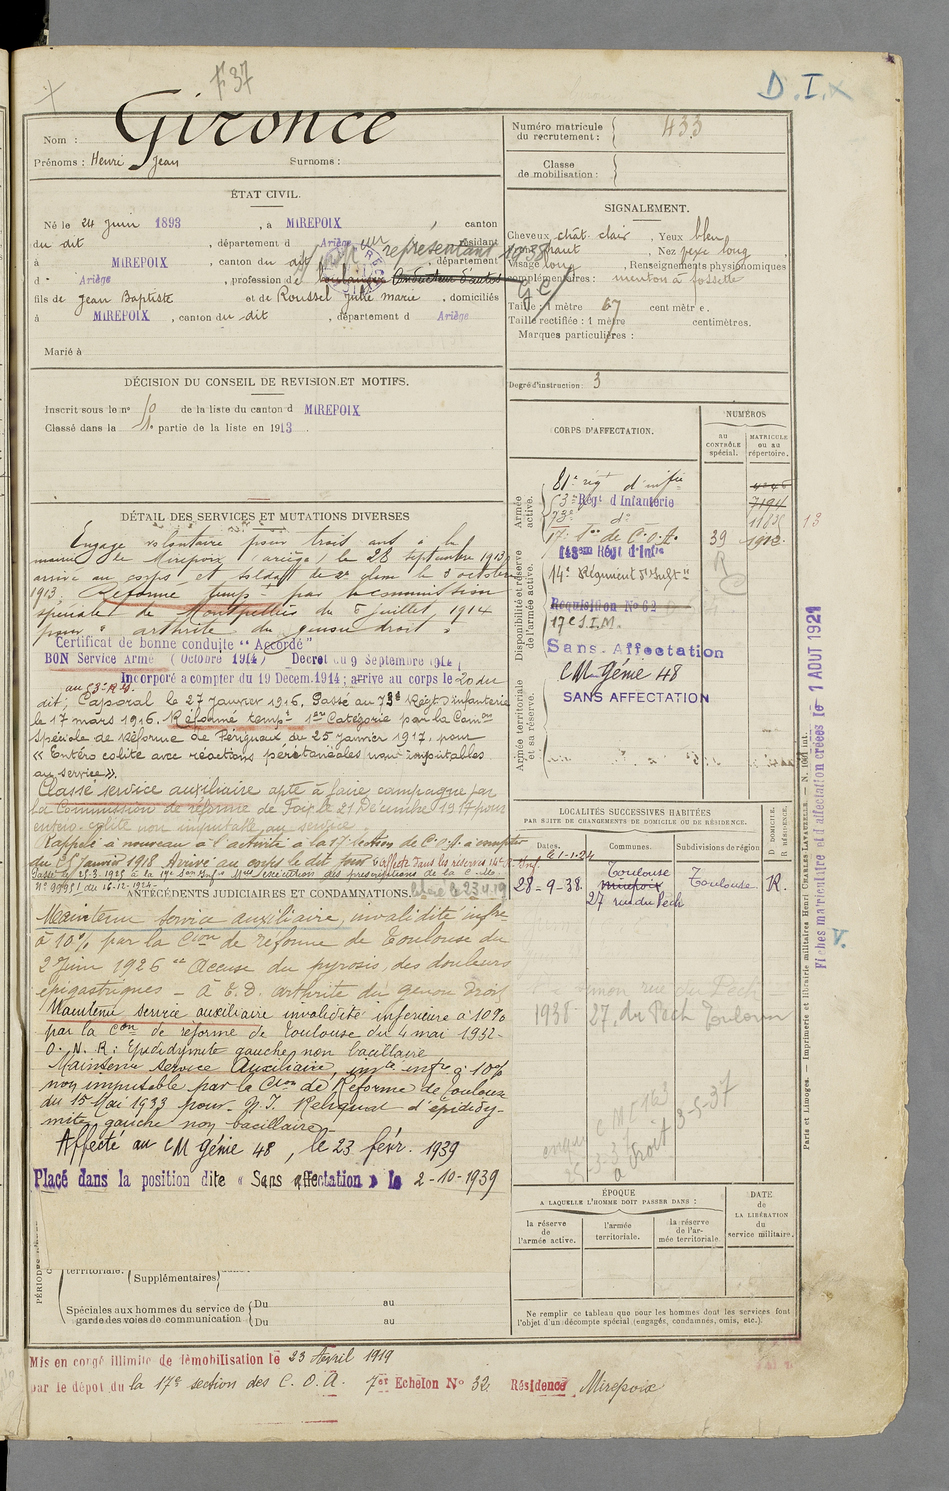 F 37
D.I.
Nom : Gironce
Prénoms : Henri Jean Surnoms :
Numéro matricule du recrutement : 433
Classe de mobilisation :
ÉTAT CIVIL.
Né le 24 Juin 1893, à MIREPOIX, canton
du dit, département d Ariège, résidant
à MIREPOIX, canton du dit, département
d Ariège, profession de boulanger Conducteur d'autos représentant 1938
fils de Jean Baptiste et de Roussel Julie Marie, domiciliés
à MIREPOIX, canton du dit, département d Ariège
Marié à
SIGNALEMENT.
Cheveux chât. clair, Yeux bleu
haut, Nez long
Visage long, Renseignements physionomiques
complémentaires : menton à fossette
Taille : 1 mètre 67 centimètre.
Taille rectifiée : 1 mètre centimètres.
Marques particulières :
Degré d'instruction : 3
DÉCISION DU CONSEIL DE REVISION ET MOTIFS.
Inscrit sous le n° 10 de la liste du canton d MIREPOIX
Classé dans la 1e partie de la liste en 1913.
DÉTAIL DES SERVICES ET MUTATIONS DIVERSES
Engagé volontaire pour trois ans à la
mairie de Mirepoix ariège, le 28 septembre 1913
arrivé au corps et soldat de 2e classe le 3 octobre
1913. Réformé temp.t par la commission
spéciale de Montpellier du 8 juillet 1914
pour "arthrite du genou droit"
Certificat de bonne conduite "Accordé"
BON Service Armé (Octobre 1914) Décret du 9 Septembre 1914
Incorporé à compter du 19 Décem. 1914 ; arrivé au corps le 20 du
dit ; Caporal le 27 janvier 1916, Passé au 73e Régt d'infanterie
le 17 mars 1916. Réformé temp.t 1ère Catégorie par la Comon
Spéciale de Réforme de Périgueux du 25 janvier 1917, pour
« Entéro colite avec réactions péritonéales non imputables
au service ».
Classé service auxiliaire apte à faire campagne par
la Commission de réforme de Foix le 21 Décembre 1917 pour
entéro-colite non imputable au service.
Rappelé à nouveau à l'activité à la 17e Section de C.O.A. à compter
du 25 janvier 1918 Arrivé au corps le dit jour
N° 99951 du 16-12-1924
ANTÉCÉDENTS JUDICIAIRES ET CONDAMNATIONS.
Maintenu service auxiliaire, invalidité infre
à 10% par la Cion de réforme de Toulouse du
2 Juin 1926 "Accuse du pyrosis, des douleurs
épigastriques – à E.D. arthrite du genou droit
Maintenu service auxiliaire invalidité inférieure à 10%
par la Con de réforme de Toulouse du 4 mai 1932-
O.N.R : Epididymite gauche, non bacillaire
Maintenu service Auxiliaire, invté infre à 10%
non imputable par la Cion de Réforme de Toulouse
du 15 Mai 1933 pour P.I. Reliquat d'épididy-
mite gauche non bacillaire
Affecté au CM Génie 48, le 23 févr. 1939
Placé dans la position dite « Sans affectation » le 2-10-1939
territoriale. Supplémentaires
Spéciales aux hommes du service de garde des voies de communication
Du au
Du au
CORPS D'AFFECTATION.
NUMÉROS
au CONTRÔLE spécial.
MATRICULE ou au répertoire.
Armée active.
81e régt d'infie
53e Régt d'Infanterie 7194
73e do
17e Son de C.O.A. 39 1902
Disponibilité et réserve de l'armée active.
143em Régt d'Infie
14e Régiment d'Inft
Requisition No 62
17e S.I.M.
Sans-Affectation
CM Génie 48
Armée territoriale et sa réserve.
SANS AFFECTATION
LOCALITÉS SUCCESSIVES HABITÉES
PAR SUITE DE CHANGEMENTS DE DOMICILE OU DE RÉSIDENCE.
D. DOMICILE.
R. RÉSIDENCE.
Dates. Communes. Subdivisions de région
21-1-24 Toulouse
28-9-38. Mirepoix Toulouse R.
27 rue du Pech
1938 27, du Pech Toulouse
ÉPOQUE
A LAQUELLE L'HOMME DOIT PASSER DANS :
la réserve de l'armée active.
l'armée territoriale.
la réserve de l'armée territoriale.
DATE de LA LIBÉRATION du service militaire.
Ne remplir ce tableau que pour les hommes dont les services font
l'objet d'un décompte spécial (engagés, condamnés, omis, etc.).
Mis en congé illimité de démobilisation le 23 Avril 1919
par le dépôt du la 17e section des C.O.A. 7er Echelon No 32. Résidence Mirepoix
Fiches matriculaire et d'affectation créées le 1 AOUT 1921
V.
Paris et Limoges. — Imprimerie et librairie militaires Henri CHARLES-LAVAUZELLE.